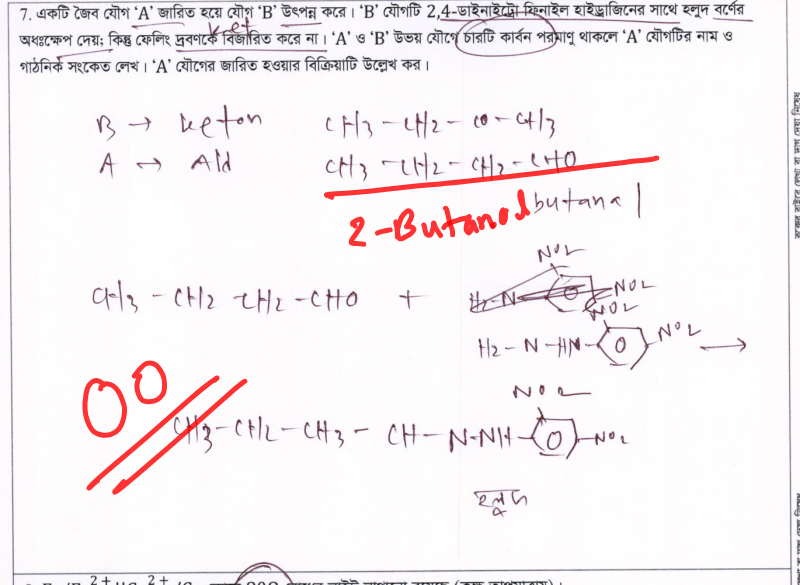 7. একটি জৈব যৌগ 'A' জারিত হয়ে যৌগ 'B' উৎপন্ন করে। 'B' যৌগটি 2,4-ডাইনাইট্রো ফিনাইল হাইড্রাজিনের সাথে হলুদ বর্ণের
অধঃক্ষেপ দেয়; কিন্তু ফেলিং দ্রবণকে বিজারিত করে না। 'A' ও 'B' উভয় যৌগে চারটি কার্বন পরমাণু থাকলে 'A' যৌগটির নাম ও
গাঠনিক সংকেত লেখ। 'A' যৌগের জারিত হওয়ার বিক্রিয়াটি উল্লেখ কর।
ket
B → keton CH3 - CH2 - CO - CH3
A → Ald CH3 - CH2 - CH2 - CHO
2-Butanol butanal
NO2
CH3 - CH2 - CH2 - CHO + H2-N NO2
NO2
H2 - N - HN - NO2 →
NO2
CH3 - CH2 - CH3 - CH - N - NH - NO2
হলুদ
00